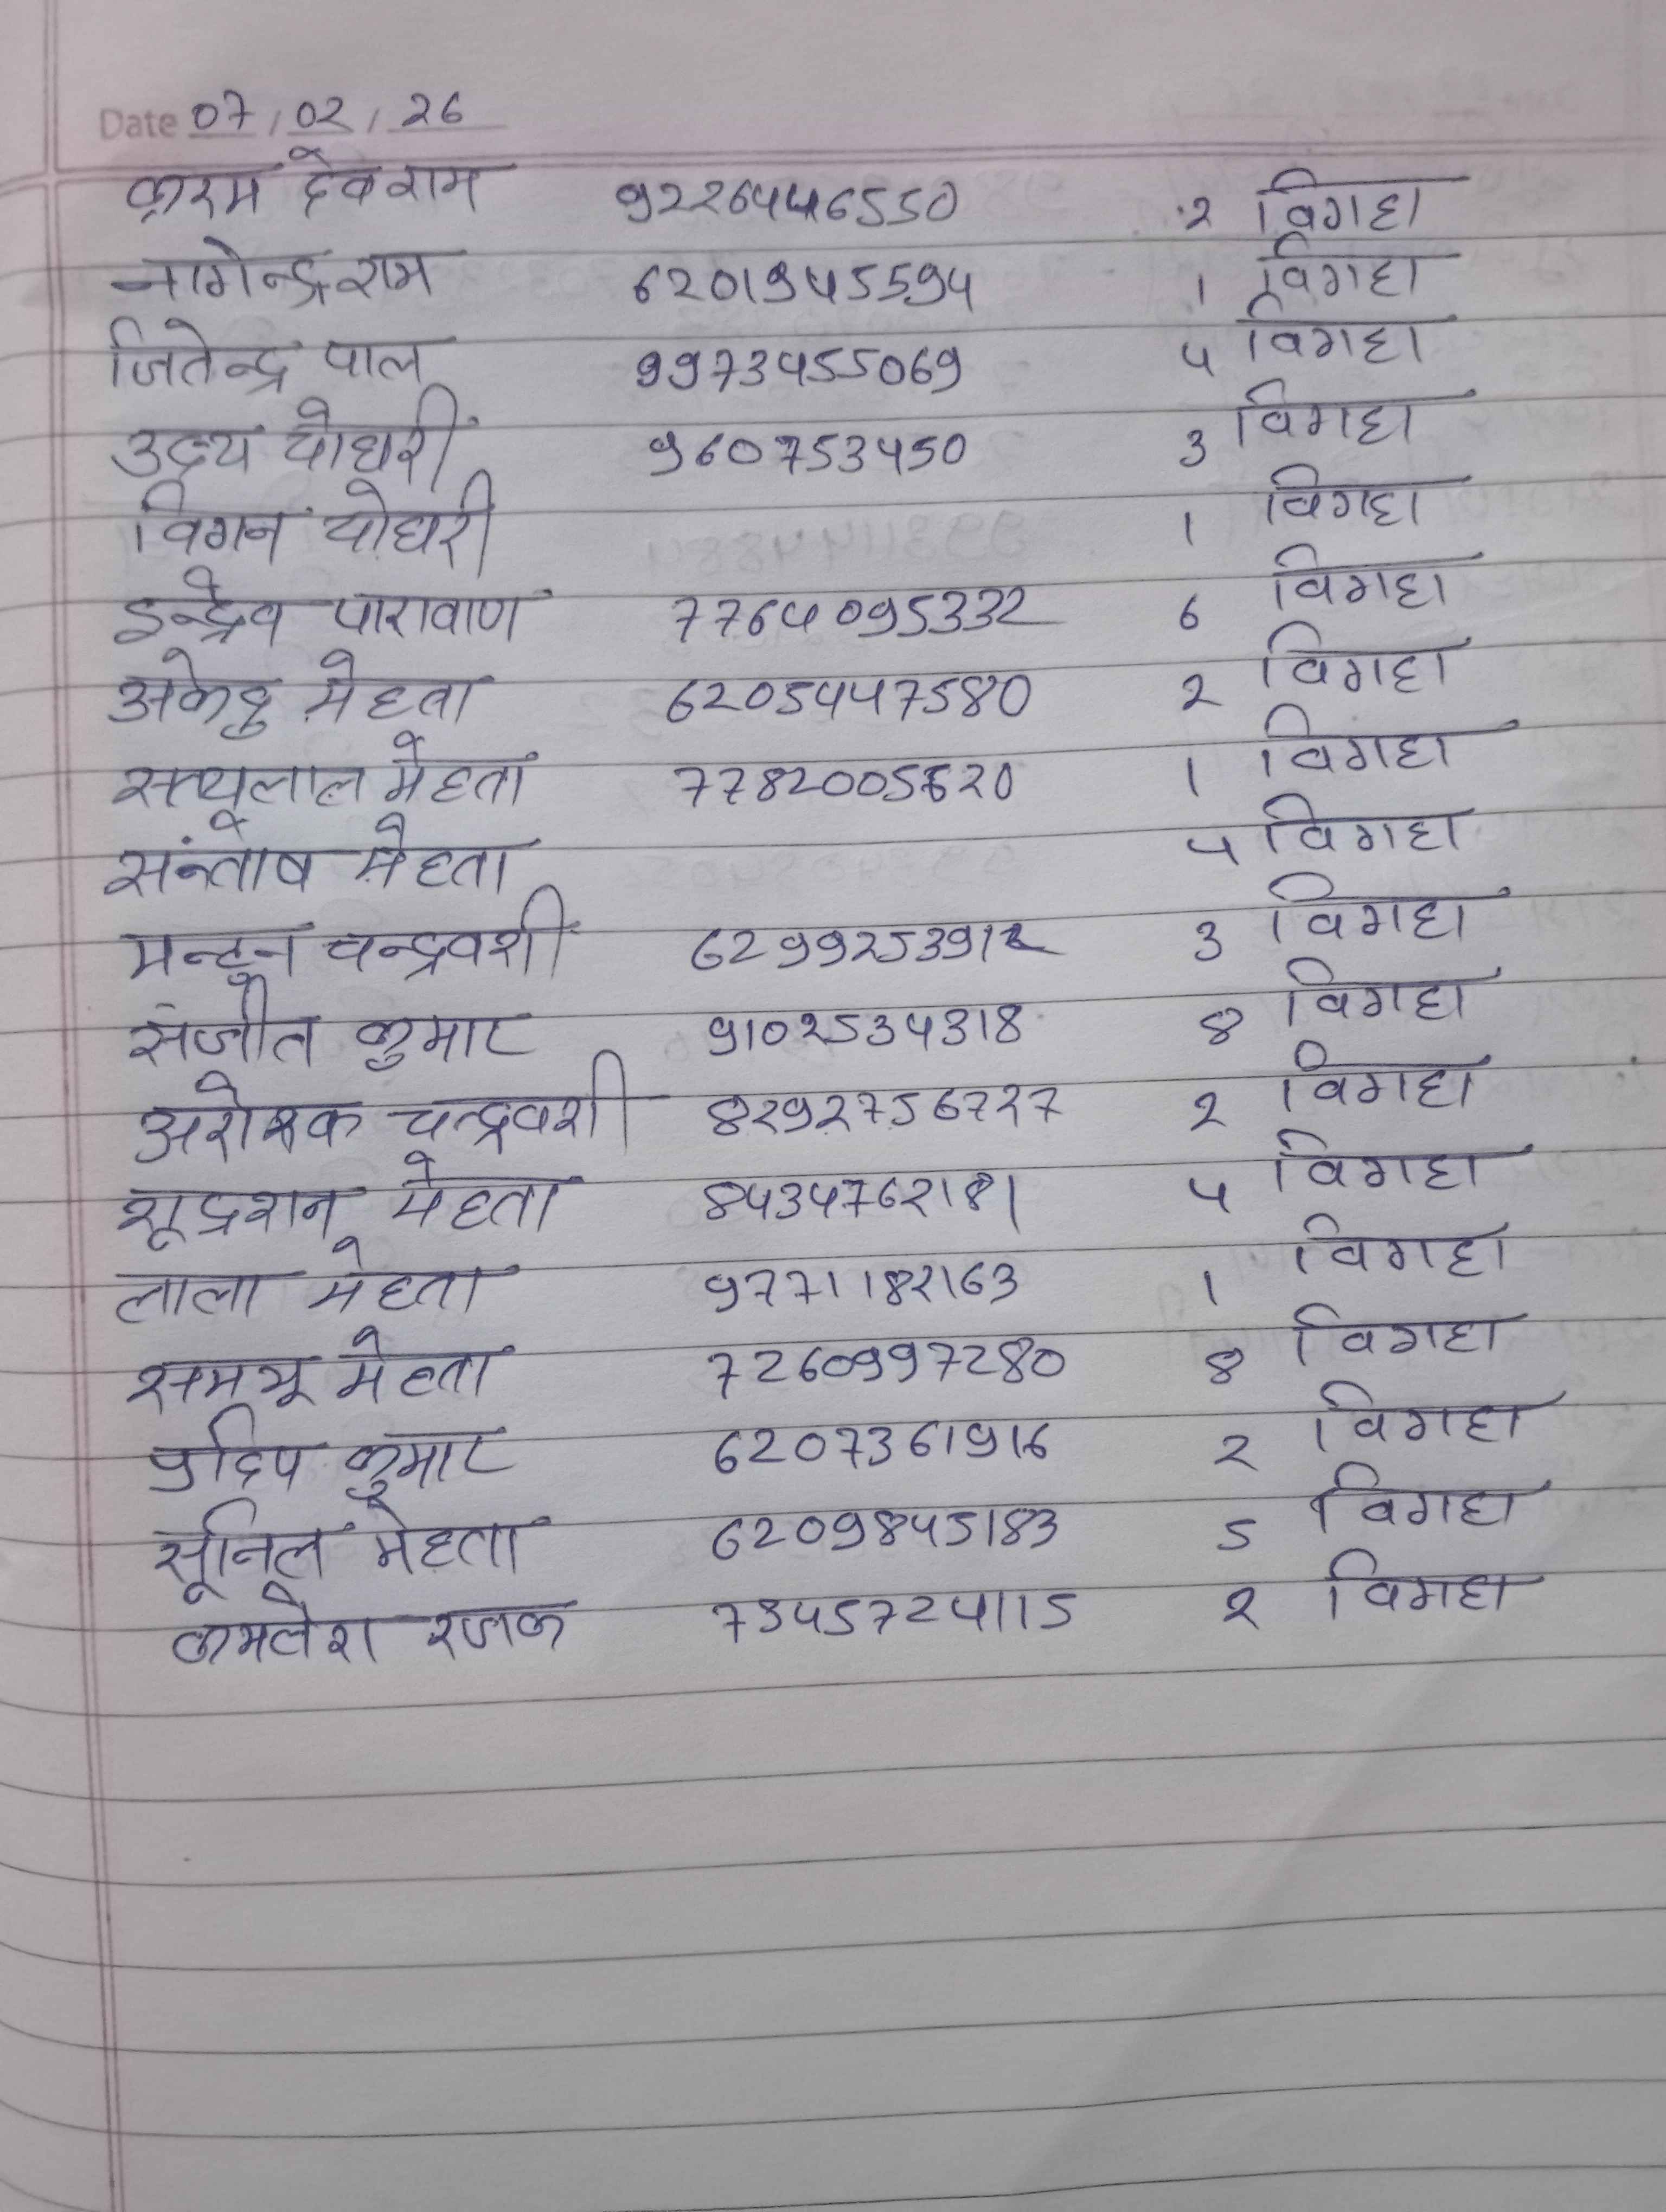 Date 07/02/26
करम देव राम 9226446550 2 विगहा
नागेन्द्र राम 6201945594 1 विगहा
जितेन्द्र पाल 9973455069 4 विगहा
उदय चौधरी 960753450 3 विगहा
विगन चोधरी 1 विगहा
इन्द्रेव पारावाण 7764095332 6 विगहा
अकेदु मेहता 6205447580 2 विगहा
मेहता 7782005620 1 विगहा
संन्तोष मेहता 4 विगहा
मन्टुन चन्द्रवशी 6299253912 3 विगहा
संजीत कुमार 9102534318 8 विगहा
अशोक चन्द्रवशी 8292756727 2 विगहा
शूद्रशन मेहता 8434762181 4 विगहा
लाला मेहता 9771182163 1 विगहा
समभू मेहता 7260997280 8 विगहा
प्रदिप कुमार 6207361916 2 विगहा
सूनिल मेहता 6209845183 5 विगहा
कमलेश रजक 7345724115 2 विगहा